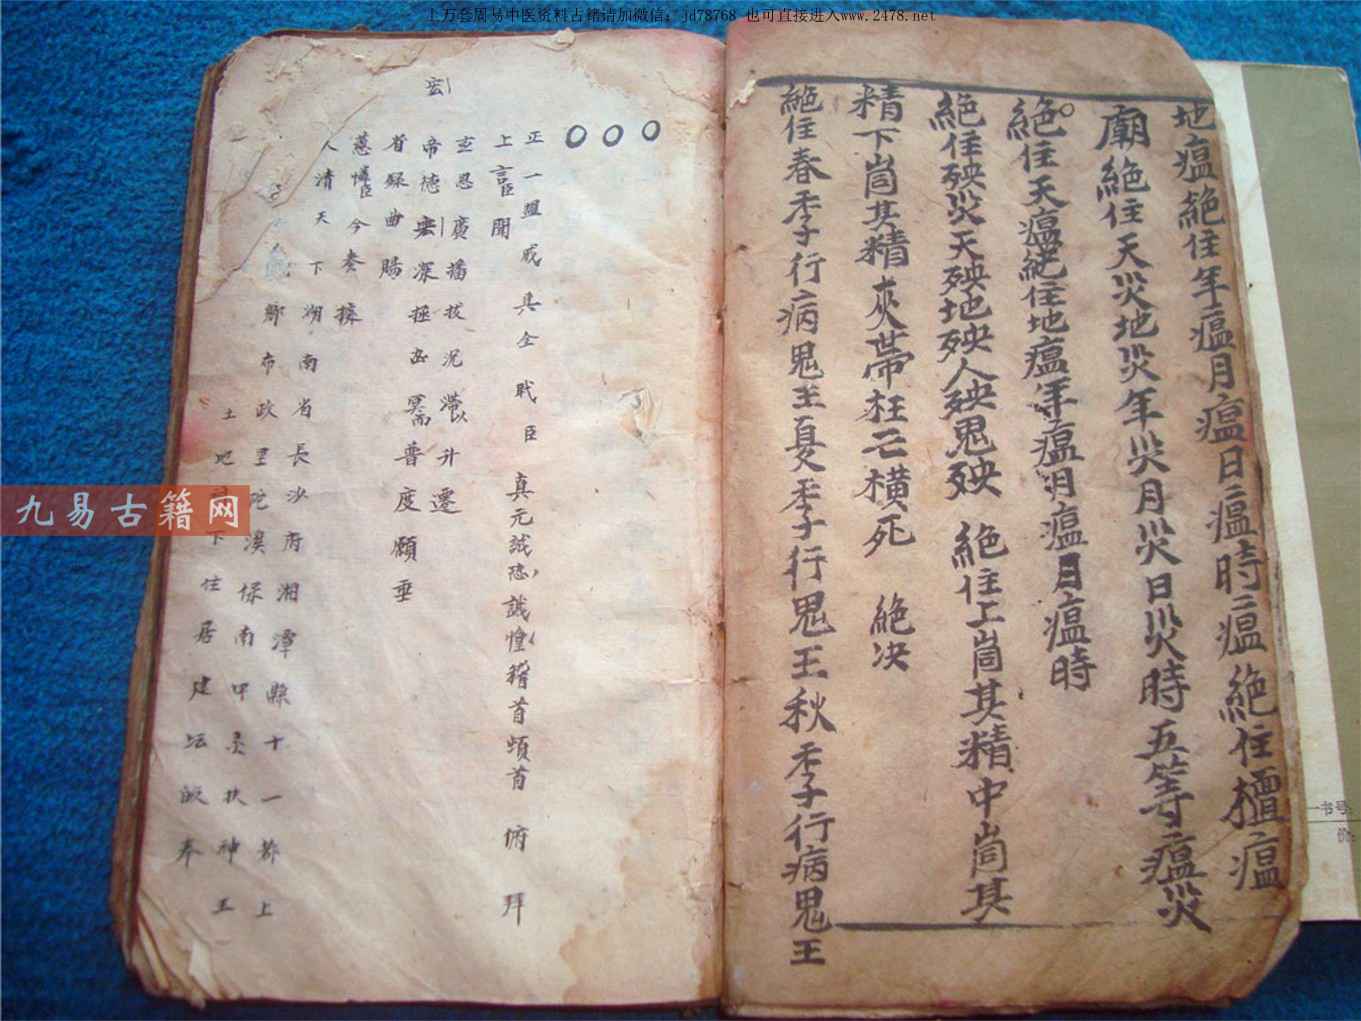 上万套周易中医资料古籍请加微信：jd78768 也可直接进入www.2478.net
地瘟絕住年瘟月瘟日瘟時瘟絕住檀瘟
廟絕住天災地災年災月災日災時五等瘟災
絕住天瘟絕住地瘟年瘟月瘟日瘟時
絕住殃災天殃地殃人殃鬼殃 絕住上崗其精中崗其
精下崗其精夾帶枉亡橫死 絕決
絕住春季行病鬼王夏季行鬼王秋季行病鬼王
正一盟威具全 臣 真元誠恐誠惶稽首頓首 俯 拜
上言臣聞
玄恩廣播拔況滯以升遷
帝德宏深拯 冥而普度願垂
宏
首錄曲賜
慈 臣今奏 據
人清天下湖南省長沙府湘潭縣十一都上
鄉市政里 溪保南甲 扶神王
土地 下住居建坛 奉
九易古籍网
一书号
价